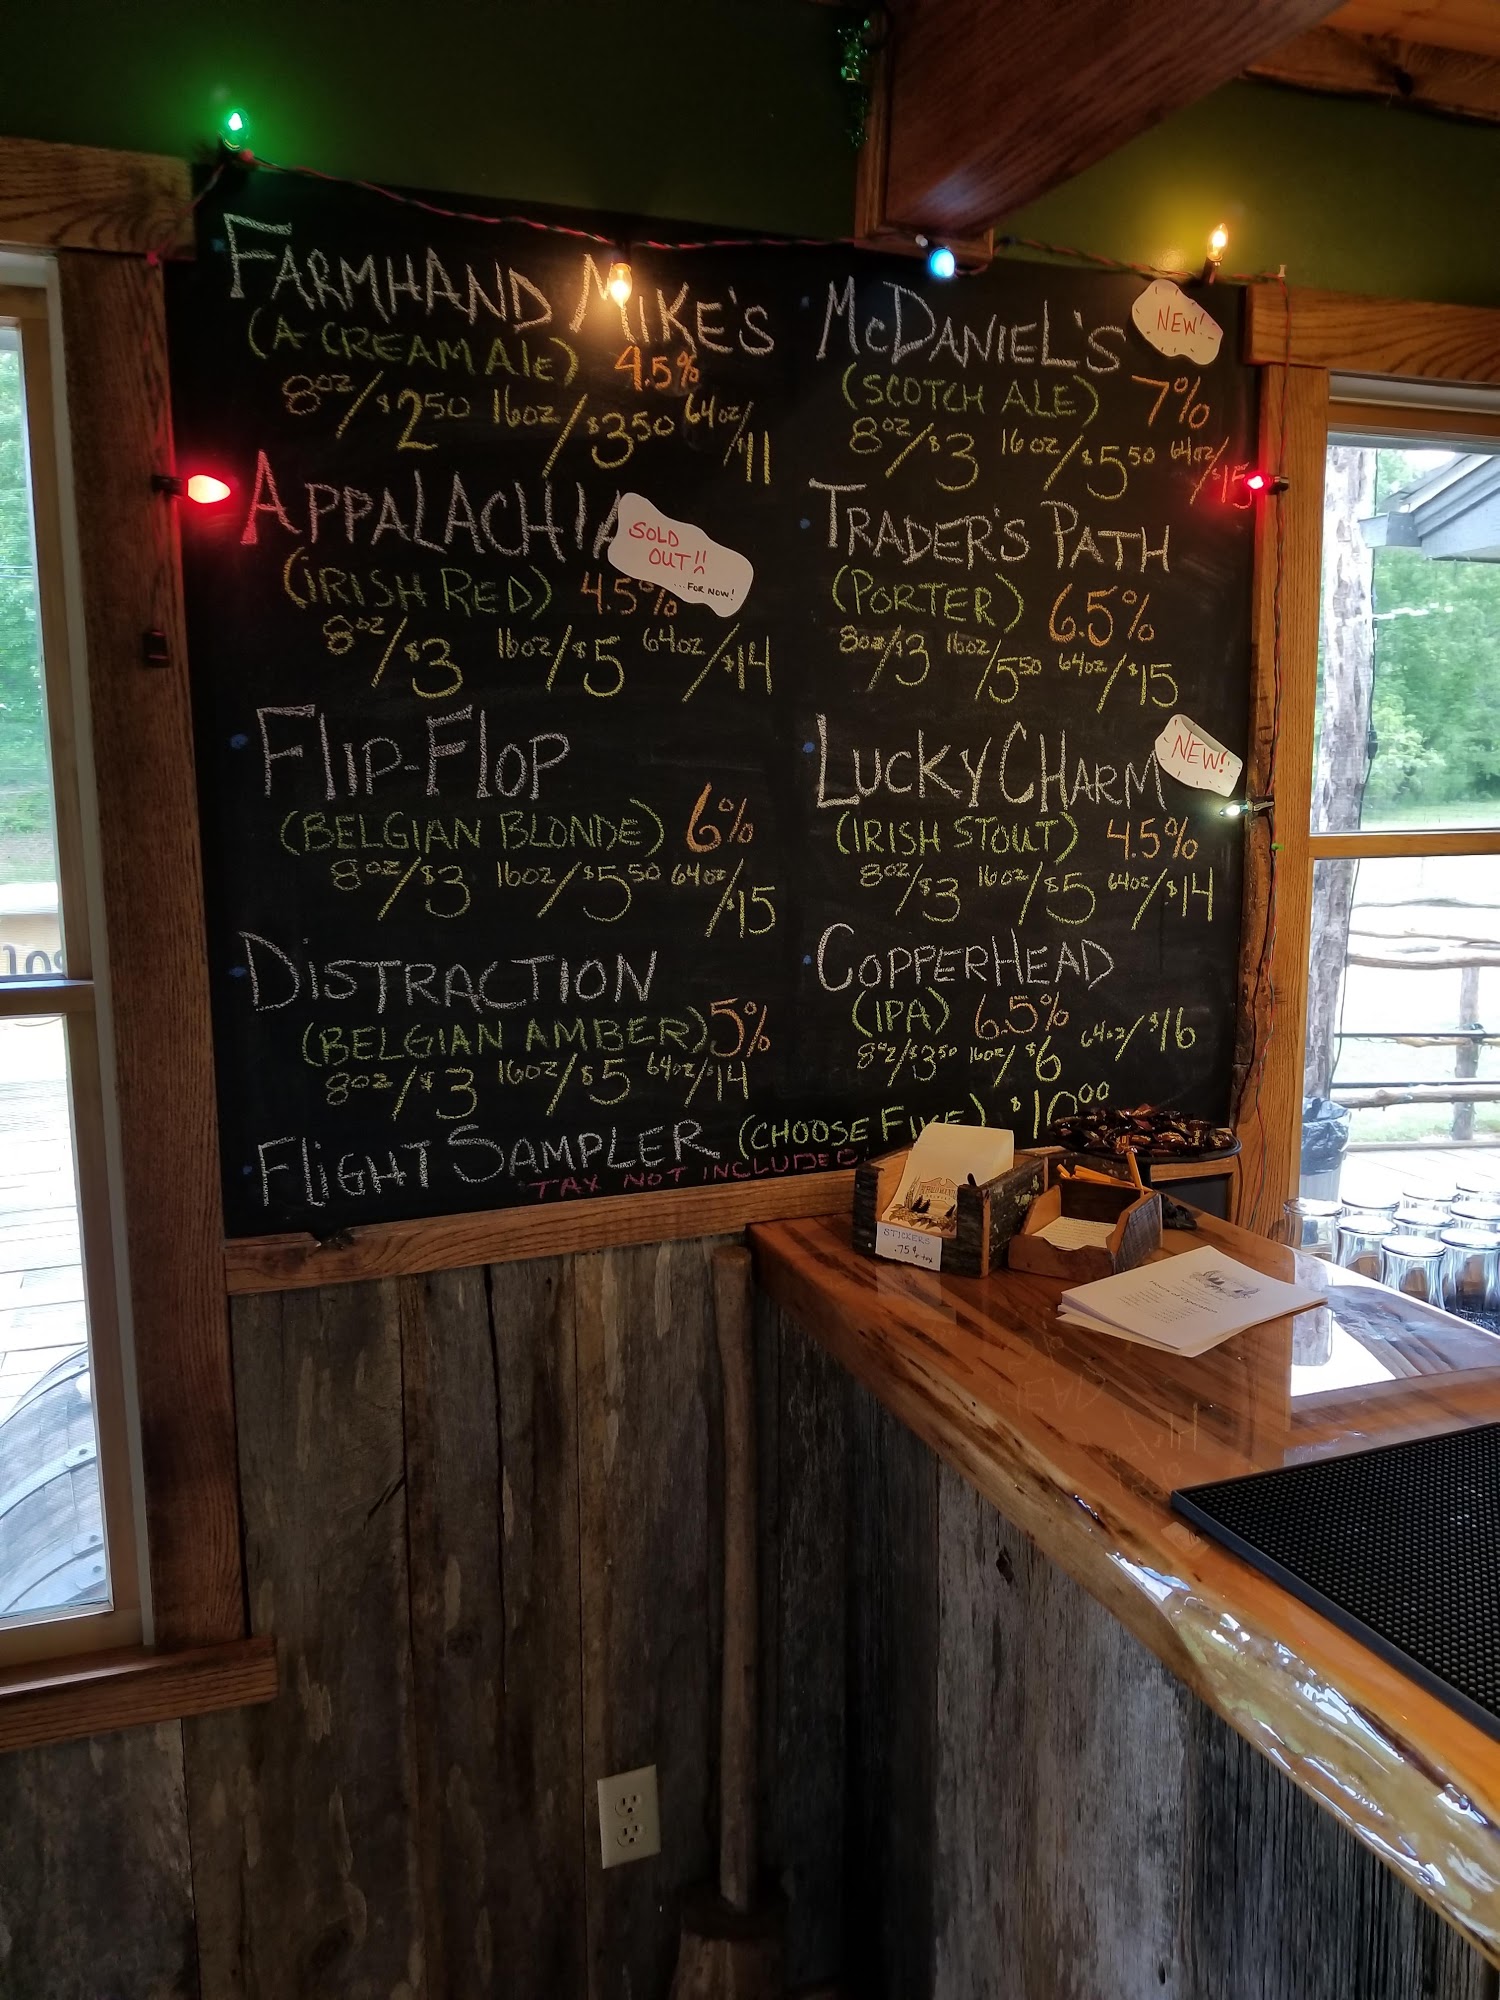 FARMHAND MIKE'S
(A CREAM ALE) 4.5%
8oz/$2.50 16oz/$3.50 64oz/$11
APPALACHIA
SOLD
OUT!!
...FOR NOW!
(IRISH RED) 4.5%
8oz/$3 16oz/$5 64oz/$14
FLIP-FLOP
(BELGIAN BLONDE) 6%
8oz/$3 16oz/$5.50 64oz/$15
DISTRACTION
(BELGIAN AMBER) 5%
8oz/$3 16oz/$5 64oz/$14
McDANIEL'S
NEW!
(SCOTCH ALE) 7%
8oz/$3 16oz/$5.50 64oz/$15
TRADER'S PATH
(PORTER) 6.5%
8oz/$3 16oz/5.50 64oz/$15
LUCKY CHARM
NEW!
(IRISH STOUT) 4.5%
8oz/$3 16oz/$5 64oz/$14
COPPERHEAD
(IPA) 6.5%
8oz/$3.50 16oz/$6 64oz/$16
FLIGHT SAMPLER (CHOOSE FIVE) $10.00
TAX NOT INCLUDED!
STICKERS
.75¢ + tax